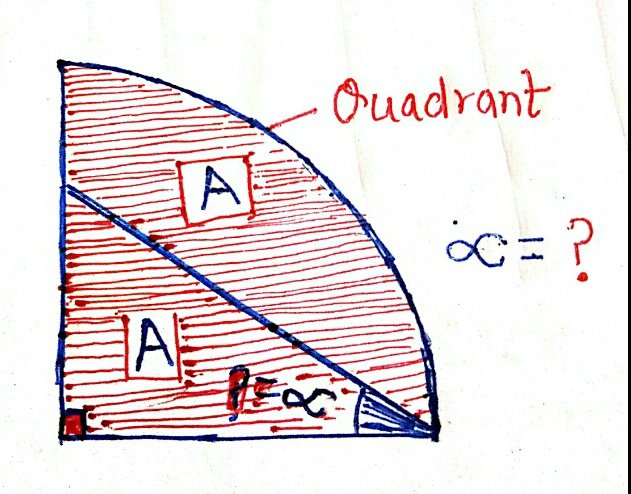 Quadrant
A
∝ = ?
A
? = ∝